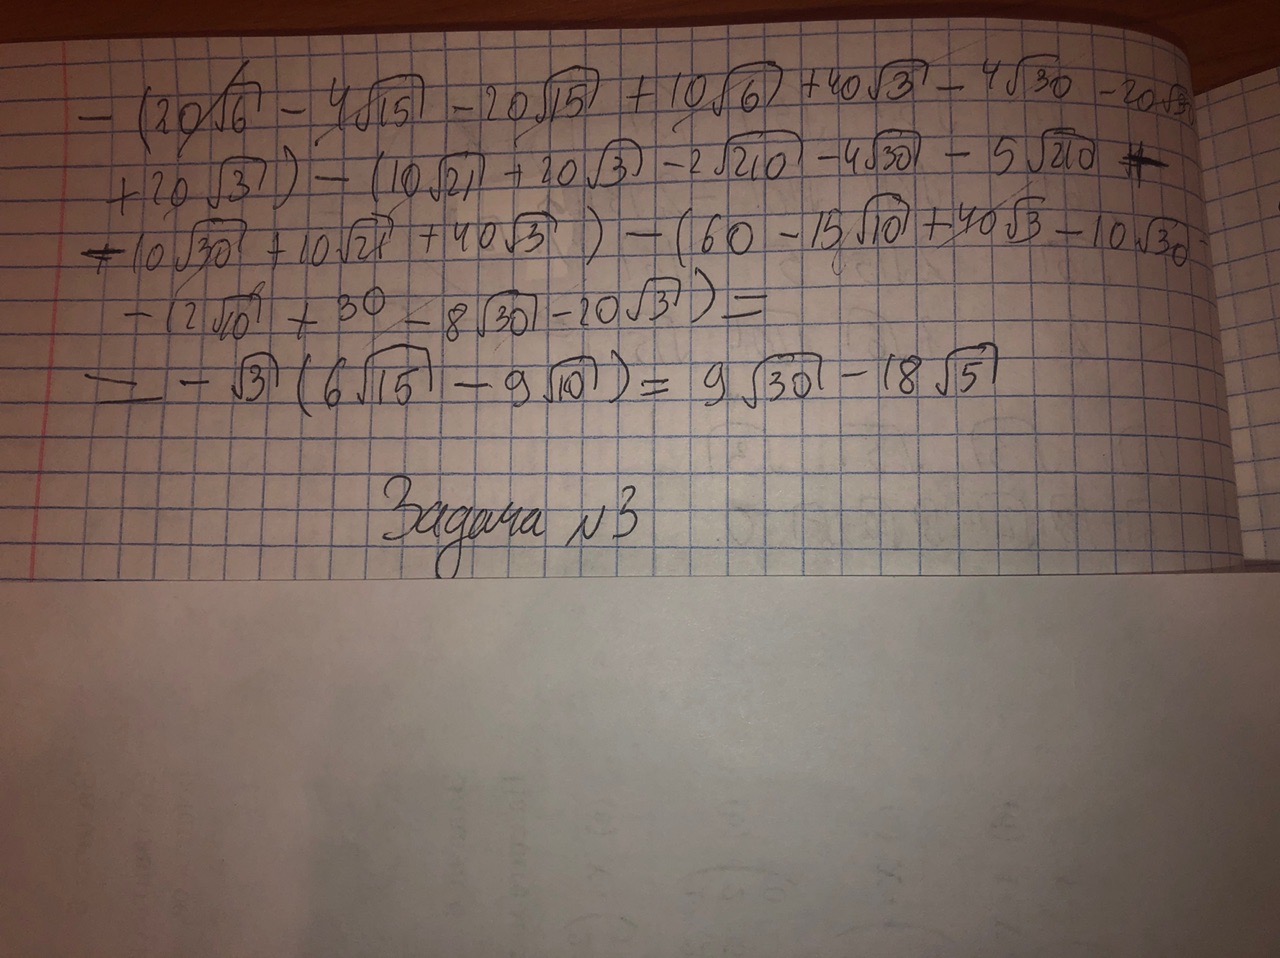 - (20√6 - 4√15 - 20√15 + 10√6) + 40√3 - 4√30 - 20√30
+ 20√3) - (10√21 + 20√3 - 2√210 - 4√30 - 5√210
- 10√30 + 10√21 + 40√3) - (60 - 15√10 + 40√3 - 10√30 -
- 12√10 + 30 - 8√30 - 20√3) =
= - √3 (6√15 - 9√10) = 9√30 - 18√5
Задача №3